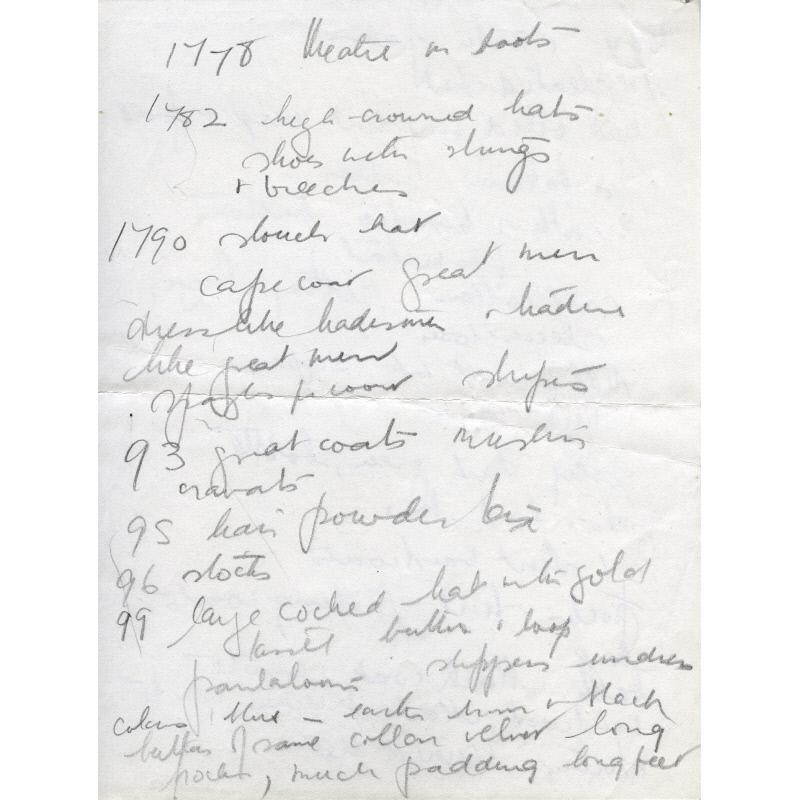 1778 theatre in boots
1782 high-crowned hats
shoes with strings
+ breeches
1790 slouch hat
cape coat great men
dress like tradesmen + tradesmen
like great men
stripes
93 great coats muslin
cravats
95 hair powder tax
96 stocks
99 large cocked hat with gold
tassel button + loop
pantaloons slippers undress
colours, blue – + black
button of same collar velvet long
much padding long feet